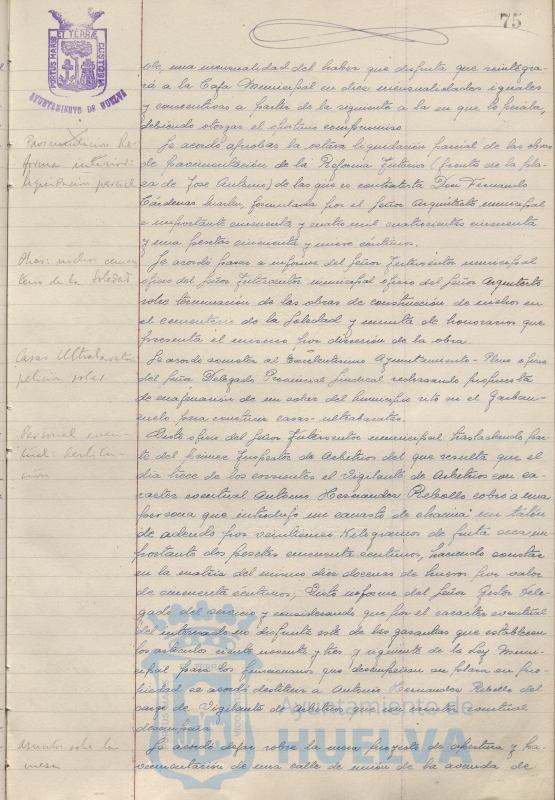 75
PORTUS MARIS ET TERRÆ CUSTODIA
AYUNTAMIENTO DE HUELVA
una mensualidad del haber que disfruta que reintegra-
rá a la Caja Municipal en diez mensualidades iguales
y consecutivas a partir de la siguiente a la en que lo perciba,
debiendo otorgar el oportuno compromiso
Pavimentación Re-
forma interior:
liquidación parcial
Se acordó aprobar la octava liquidación parcial de las obras
de pavimentación de la Reforma Interior (frente de la pla-
za de Jose Antonio) de las que es contratista Don Fernando
Cárdenas formulada por el Señor Arquitecto municipal
e importante cincuenta y cuatro mil cuatrocientas cincuenta
y una pesetas cincuenta y nueve centimos.
Obras: nichos cemen-
terio de la Soledad
Se acordó pasar a informe del Señor Interventor municipal
oficio del Señor Interventor municipal oficio del Señor Arquitecto
sobre terminación de las obras de construcción de nichos en
el cementerio de la Soledad y minuta de honorarios que
presenta el mismo por dirección de la obra.
Casas Ultrabaratas
petición solar
Se acordó someter al Excelentisimo Ayuntamiento-Pleno oficio
del Señor Delegado Provincial Sindical rechazando propuesta
de enajenación de un solar del municipio sito en el
para construir casas ultrabaratas.
Personal even-
tual: destitu-
ción
Visto oficio del Señor Interventor municipal trasladando par-
te del primer Inspector de Arbitrios del que resulta que el
dia trece de los corrientes el Vigilante de Arbitrios con ca-
racter eventual Antonio Hernandez Rebollo cobró a una
persona que introdujo un canasto de un talón
de adeudo por veintisiete Kilogramos de fruta im-
portante dos pesetas cincuenta centimos, haciendo constar
en la matriz del mismo diez docenas de huevos por valor
de cincuenta centimos; Visto informe del Señor Gestor Dele-
gado del servicio y considerando que por el caracter eventual
del interesado no disfruta este de las garantias que establecen
los articulos ciento noventa y tres y siguiente de la Ley Muni-
cipal para los funcionarios que desempeñan su plaza en pro-
piedad se acordó destituir a Antonio Hernandez Rebollo del
cargo de Vigilante de Arbitrios que con caracter eventual
desempeña.
Asuntos sobre la
mesa
Se acordó dejar sobre la mesa proyecto de apertura y pa-
vimentación de una calle de unión de la avenida de
Ayuntamiento de
HUELVA